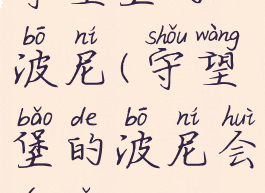 bō ní shǒu wàng
波尼(守望
bǎo de bō ní huì
堡的波尼会